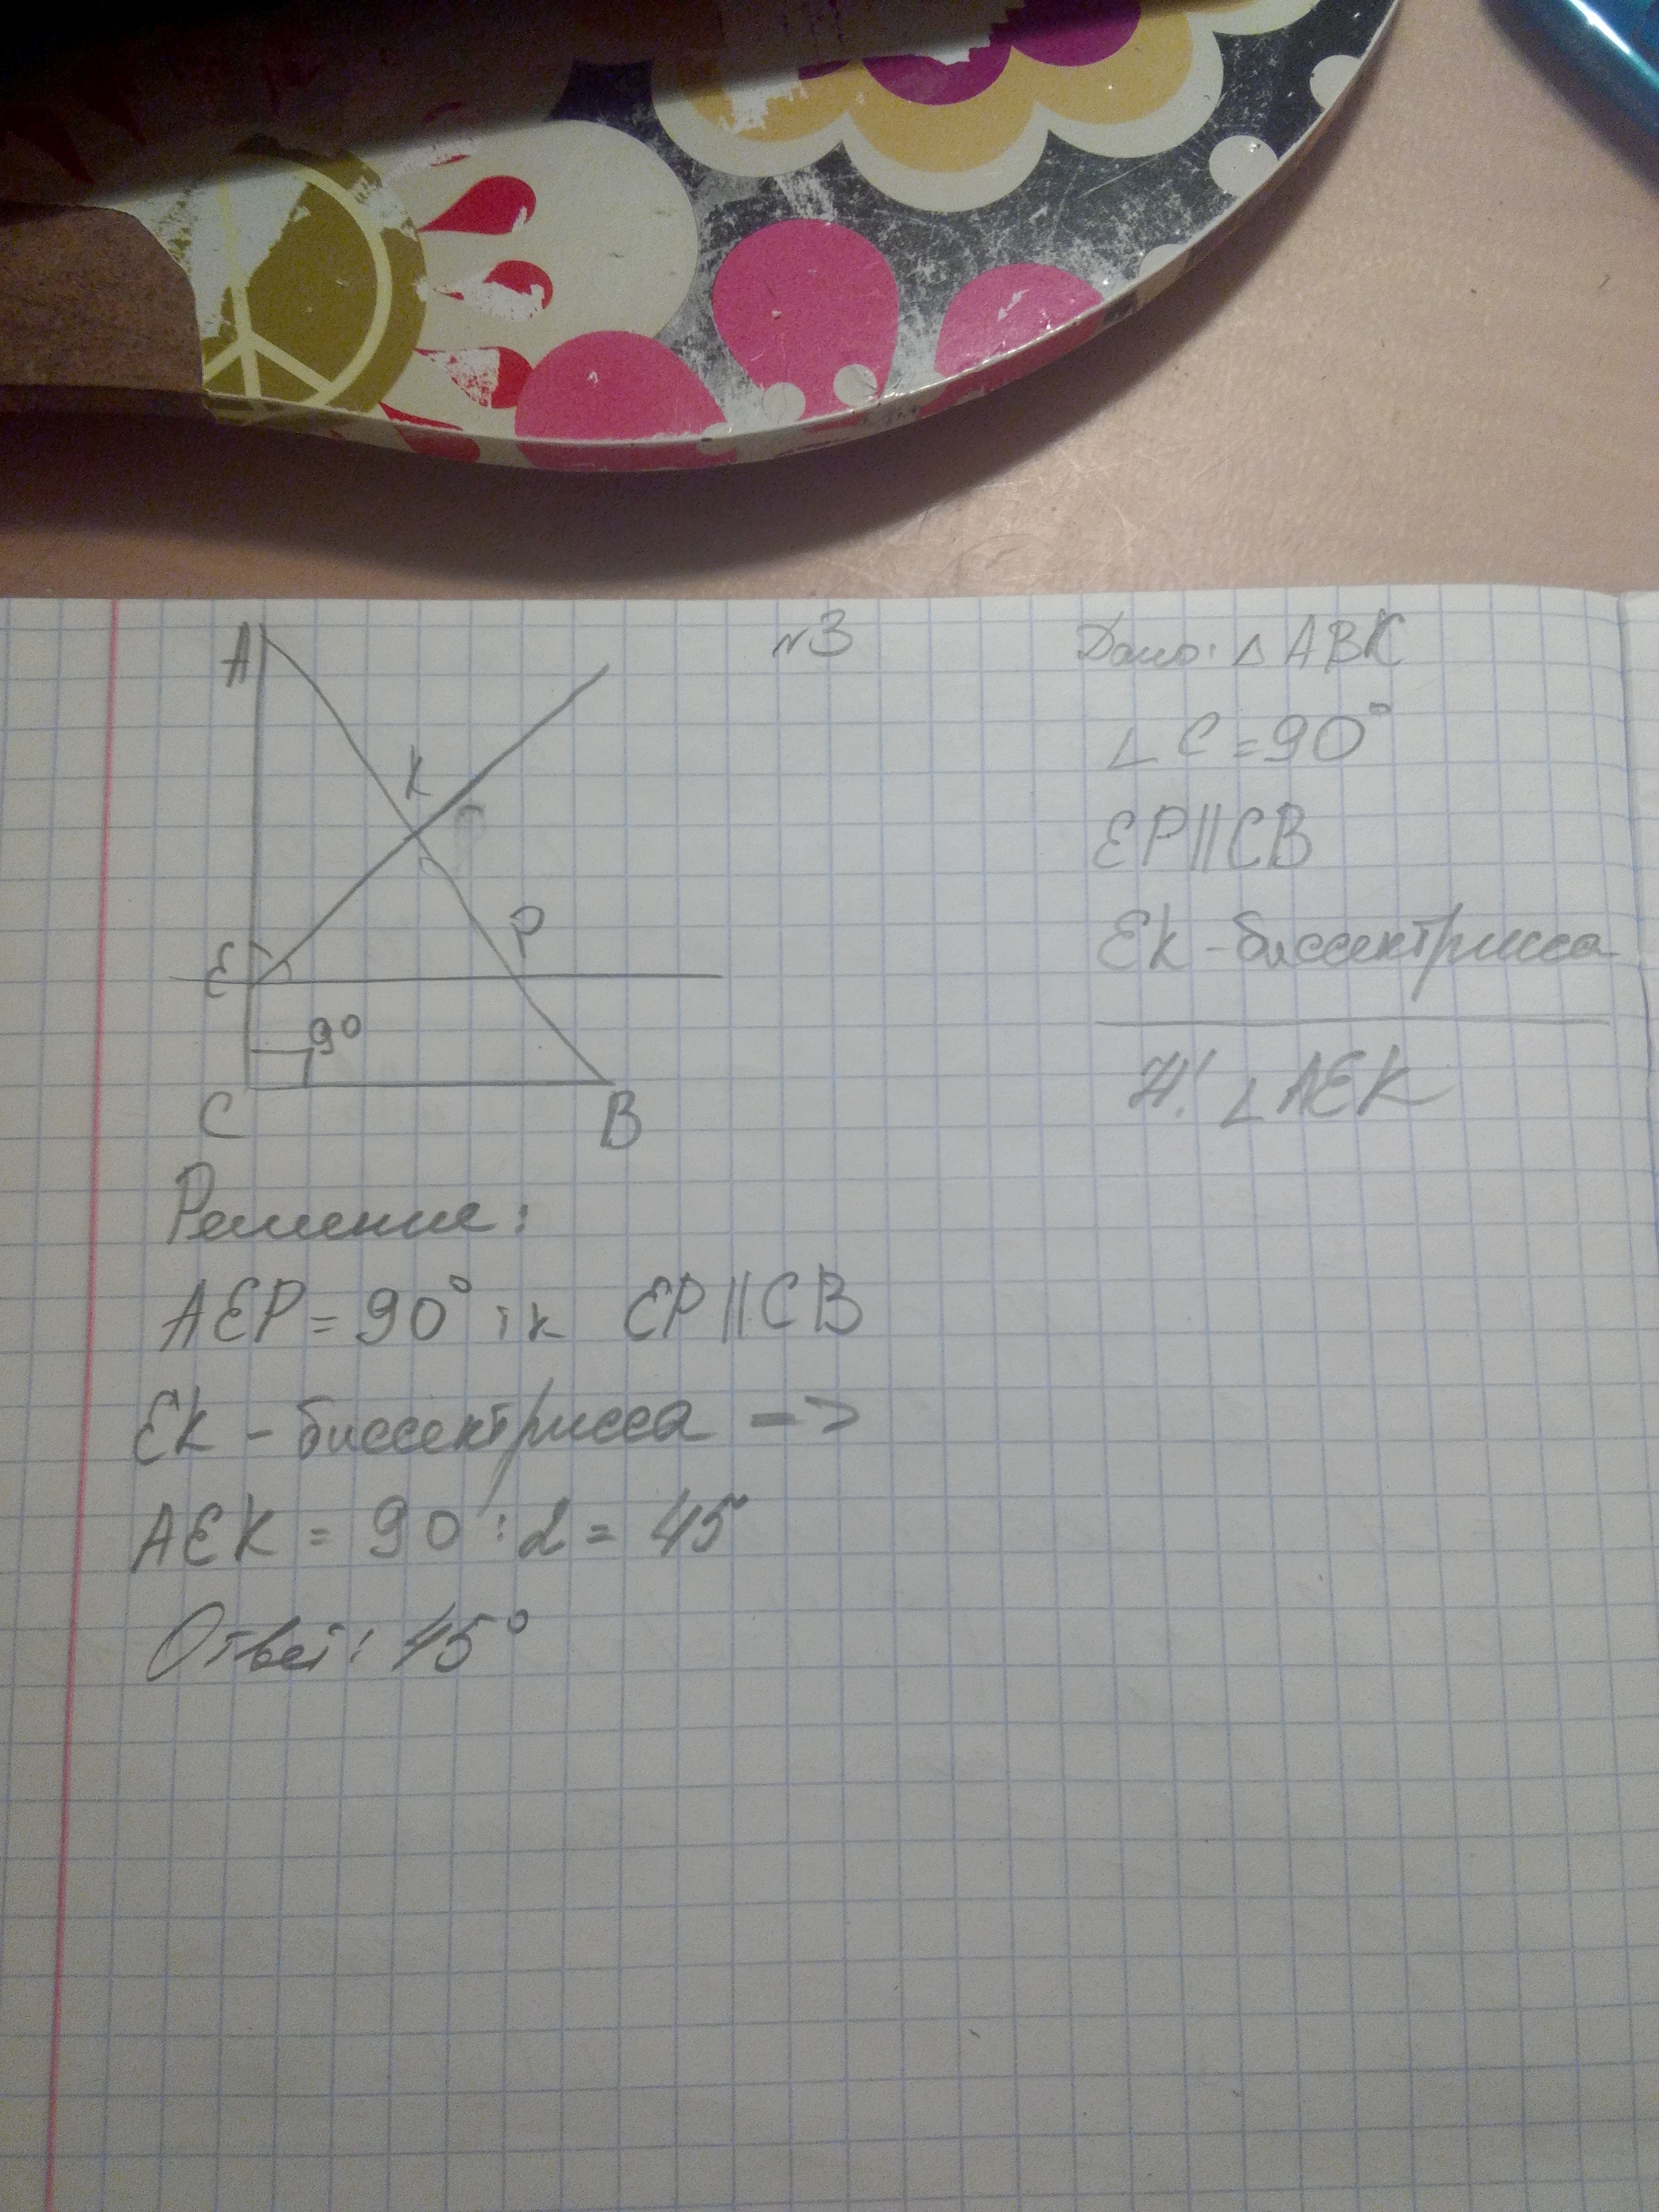 №3
Дано: △ ABC
∠C = 90°
EP || CB
EK - биссектрисса
Н! ∠AEK
A
K
P
E
90
C
B
Решение:
AEP = 90° тк EP || CB
EK - биссектрисса =>
AEK = 90 : 2 = 45°
Ответ: 45°